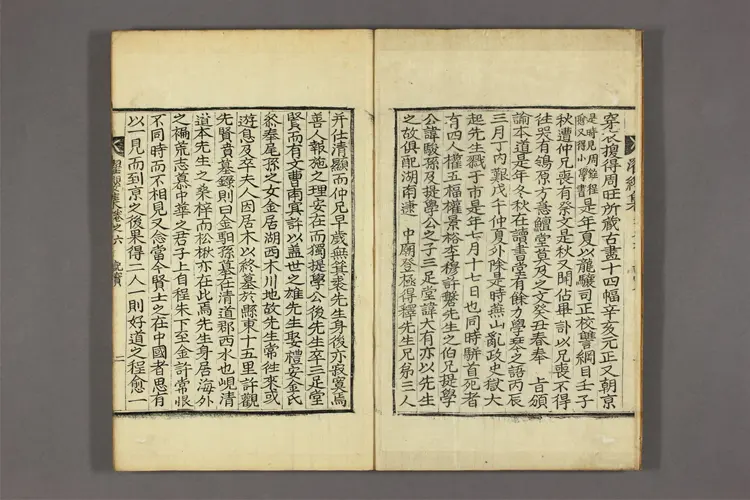 濯纓集
穿衣搜得周旺所藏古畫十四幅辛亥元正又朝京
是時見周銓程
愈又得小學書
是年夏以龍驤司正校讐綱目壬子
秋遭仲兄喪有祭文是秋又聞佔畢訃以兄喪不得
往哭有鴒原方慈堂莫及之文癸丑春奉 旨頒
諭本道是年冬秋在讀書堂有餘力學琴之語丙辰
三月丁内艱戊午仲夏外除是時燕山亂政史獄大
起先生戮于市是年七月十七日也同時騈首死者
有四人權五福權景裕李穆許磐先生之伯兄提學
公諱駿孫及提學公之子三足堂諱大有亦以先生
之故俱配湖南逮 中廟登極得釋先生兄弟三人
并仕清顯而仲兄早歲無箕裘先生身後亦寂寞焉
善人報施之理安在而獨提學公後先生卒三足堂
賢而有文曹南冥許以蓋世之雄先生娶禮安金氏
叅奉尾孫之女金居湖西木川地故先生常徃来或
遊息及卒夫人因居木以終墓於縣東十五里許觀
先賢賁墓錄則曰金馹孫墓在清道郡西水也峴清
道本先生之桑梓而松楸亦在此焉先生身居海外
之褊荒志慕中華之君子上自程朱下至金許常恨
不同時而不相見又念當今賢士之在中國者思有
以一見而到京之後果得二人一則好道之程愈一
卷之六 二